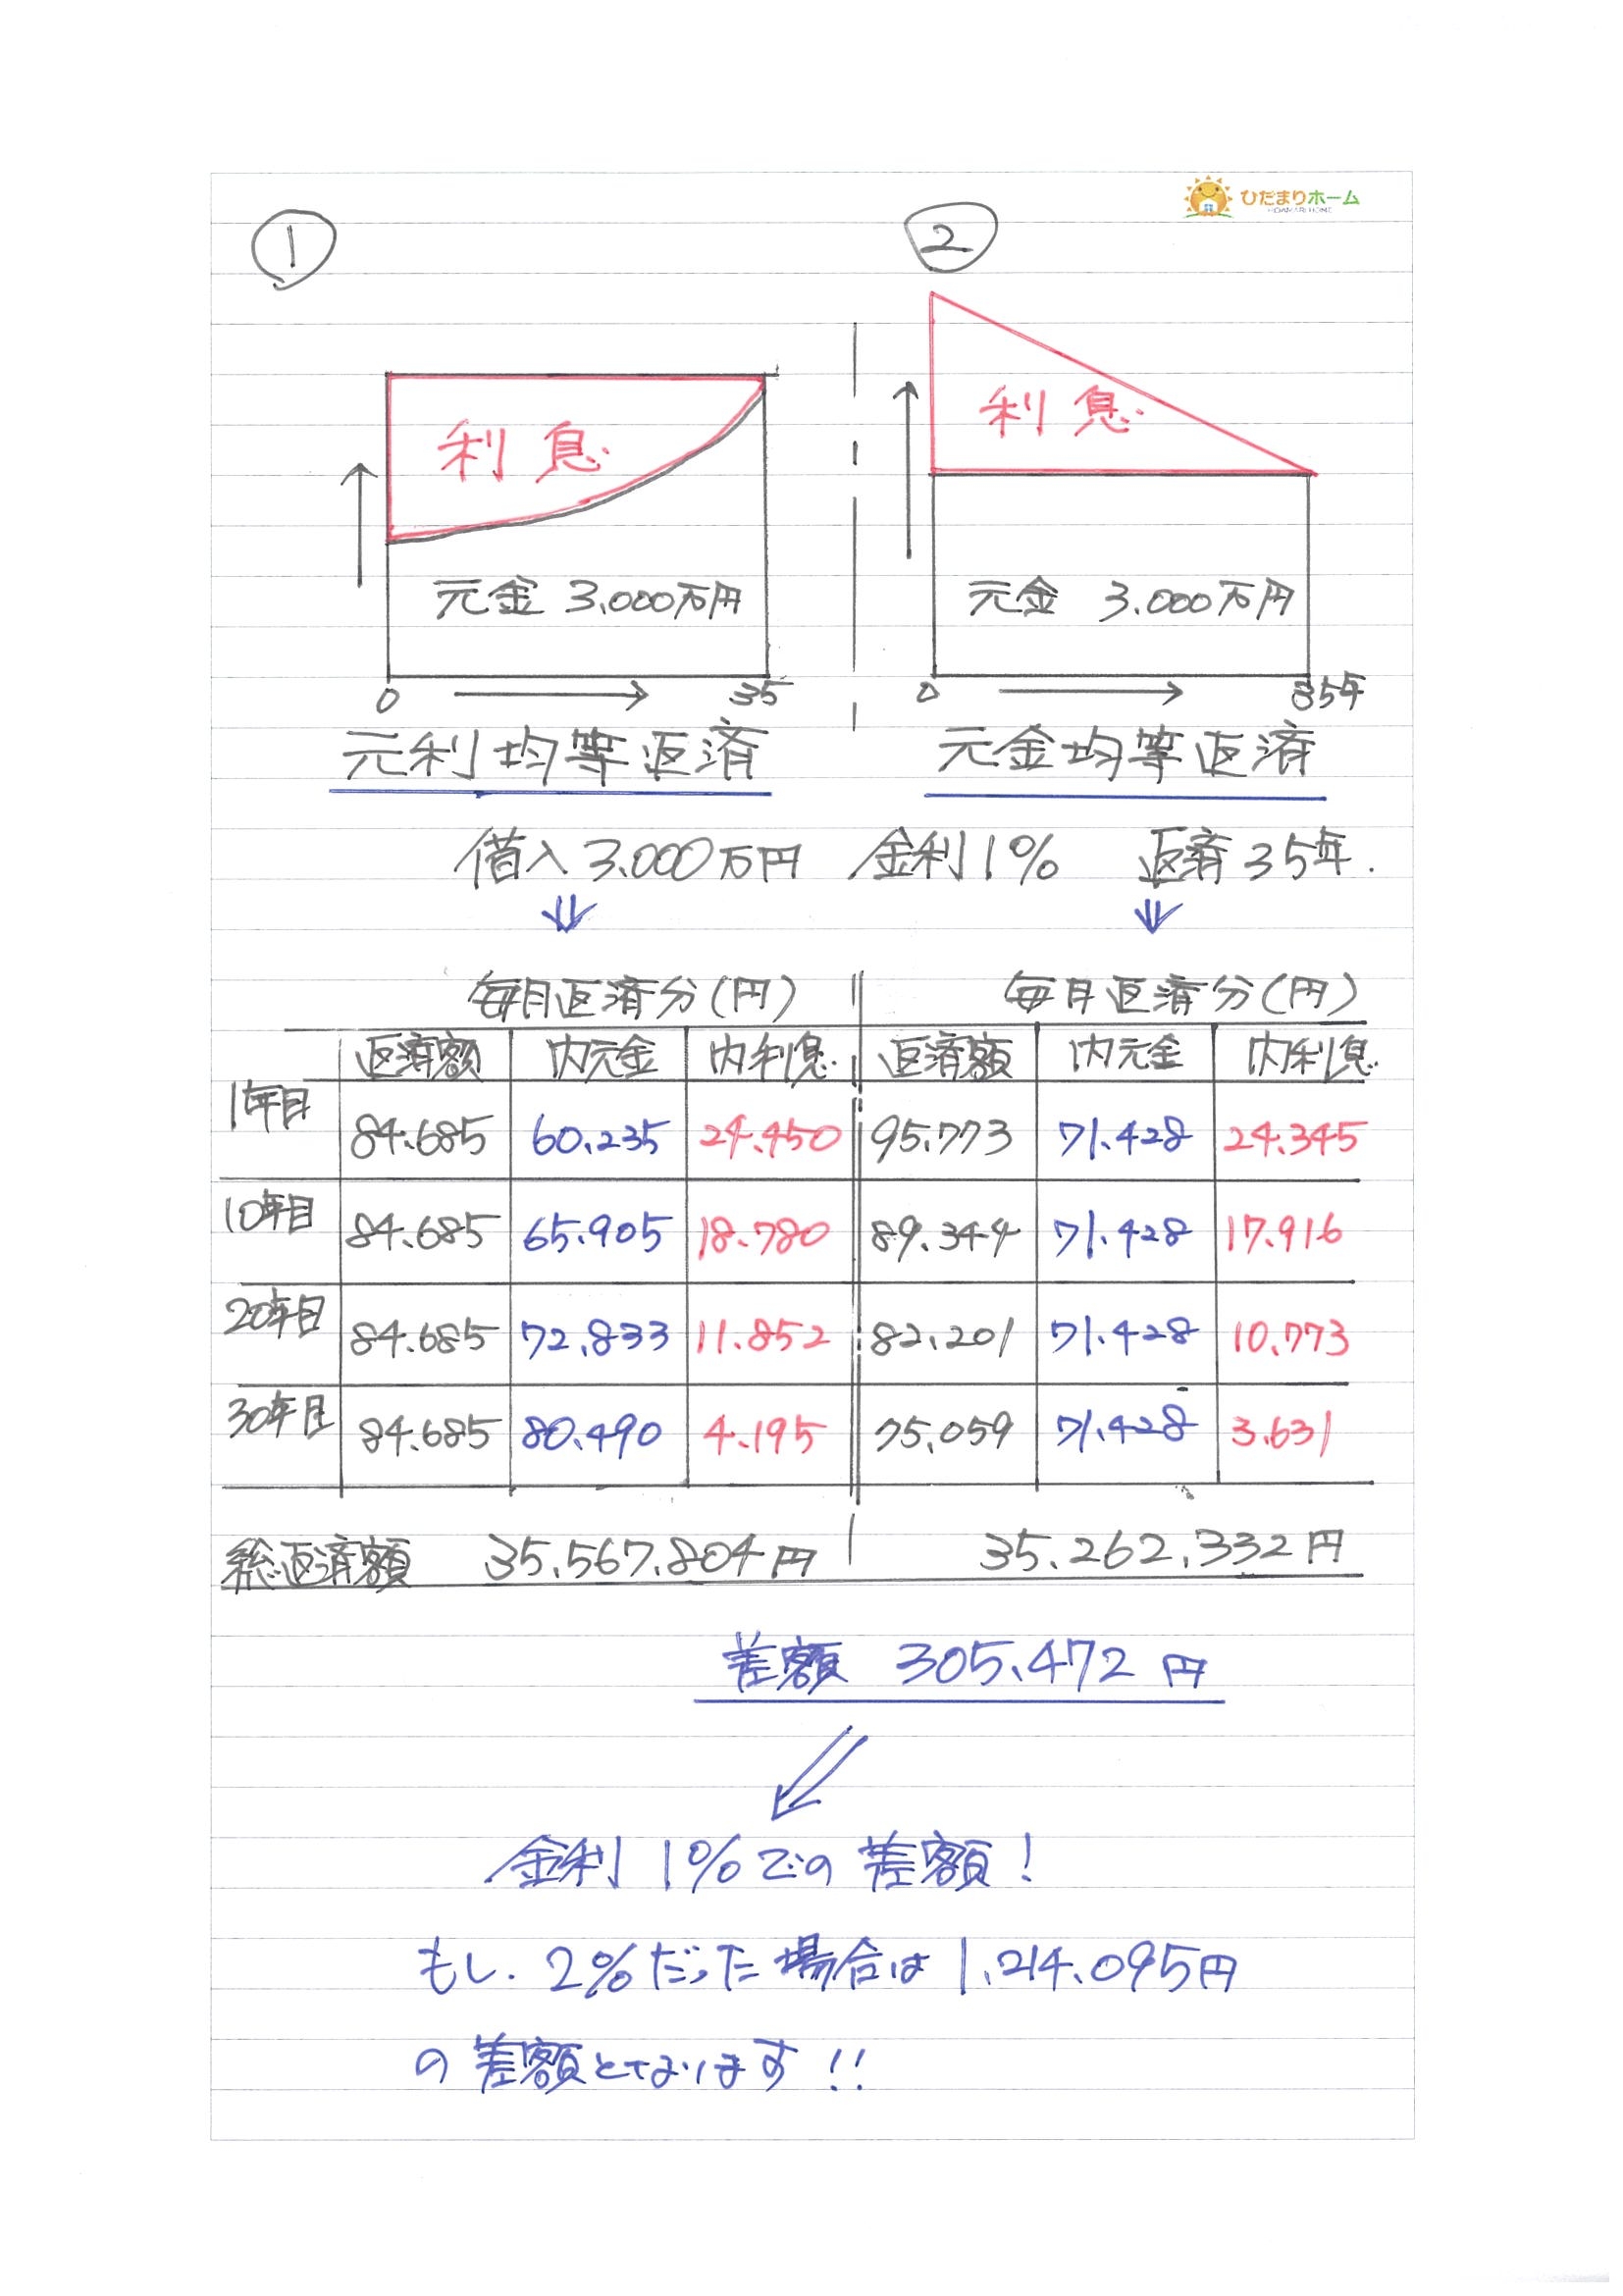 ひだまりホーム
HIDAMARI HOME
① ②
利息 利息
元金 3.000万円 元金 3.000万円
0 35 0 35年
元利均等返済 元金均等返済
借入3.000万円 金利1% 返済35年.
毎月返済分(円) 毎月返済分(円)
返済額 内元金 内利息 返済額 内元金 内利息
1年目 84.685 60.235 24.450 95.773 71.428 24.345
10年目 84.685 65.905 18.780 89.344 71.428 17.916
20年目 84.685 72.833 11.852 82.201 71.428 10.773
30年目 84.685 80.490 4.195 75.059 71.428 3.631
総返済額 35.567.804円 35.262.332円
差額 305.472円
金利 1%での差額!
もし. 2%だった場合は1.214.095円
の差額となります!!